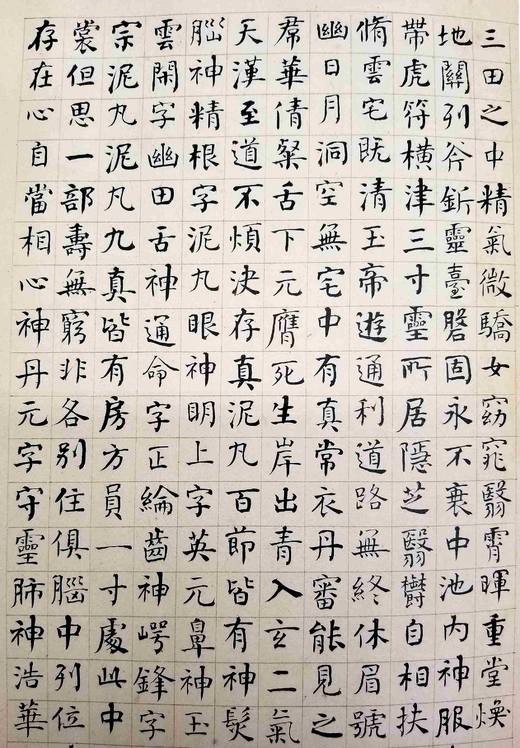 三田之中精氣微驕女窈窕翳霄暉重堂煥
地關列斧釿靈臺磐固永不衰中池內神服
帶虎符橫津三寸靈所居隱芝翳鬱自相扶
脩雲宅既清玉帝遊通利道路無終休眉號
幽日月洞空無宅中有真常衣丹審能見之
帬華倩粲舌下元膺死生岸出青入玄二氣
天漢至道不煩決存真泥丸百節皆有神髮
腦神精根字泥丸眼神明上字英元鼻神玉
雲閑字幽田舌神通命字正綸齒神崿鋒字
宗泥丸泥丸九真皆有房方員一寸處此中
裳但思一部壽無窮非各別住俱腦中列位
存在心自當相心神丹元字守靈肺神浩華